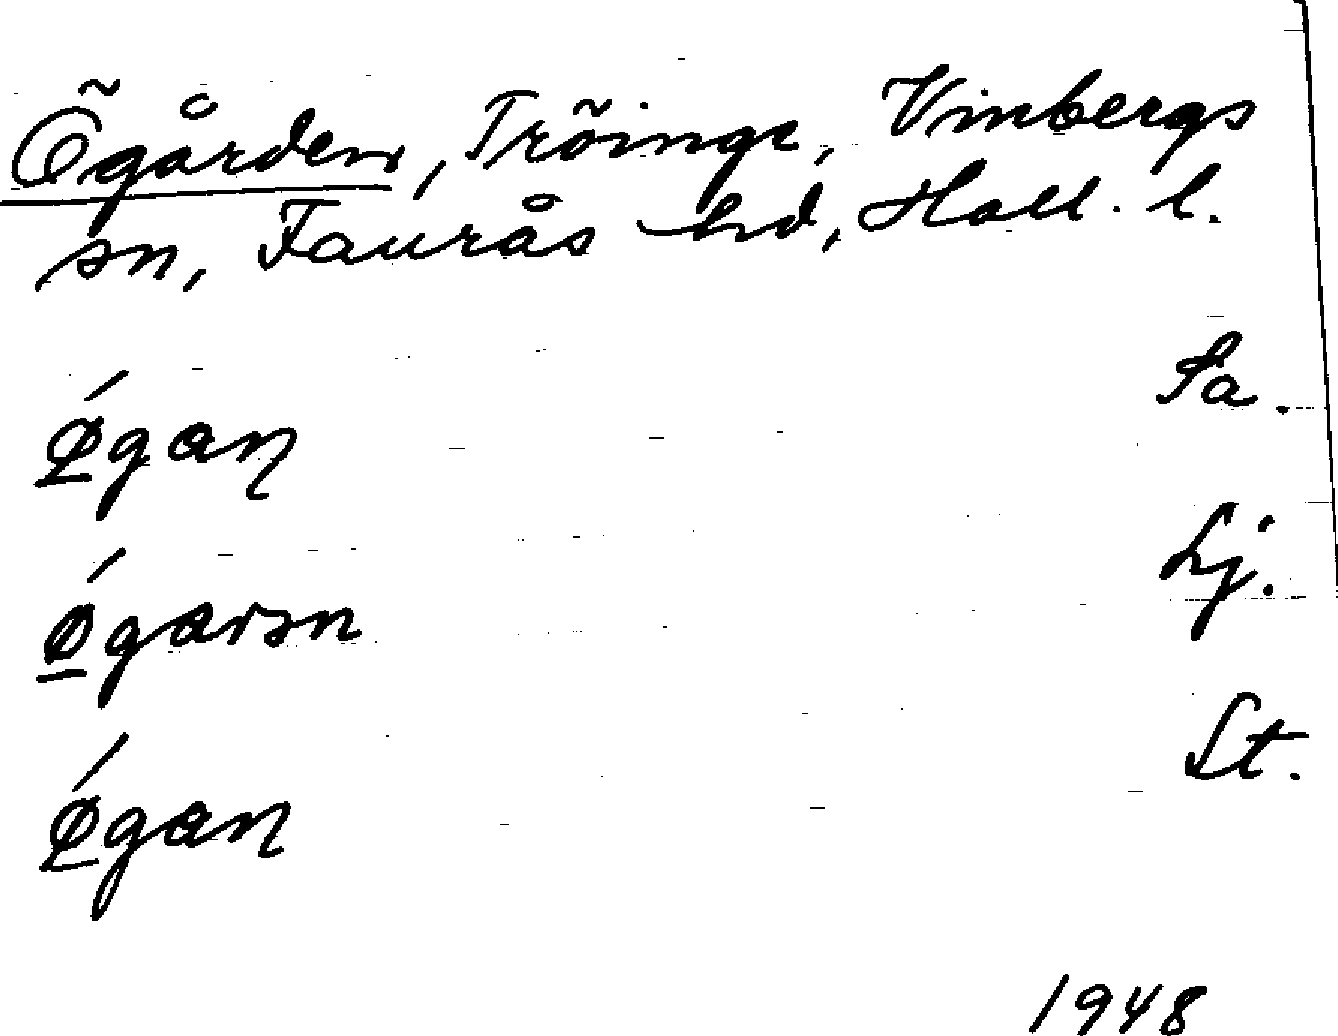 Ögården, Tröinge, Vinbergs
sn, Faurås hd, Hall. l.
Sa.
ǿ̱gaɳ
Lj.
ǿ̱garsn
St.
ǿ̱gaɳ
1948